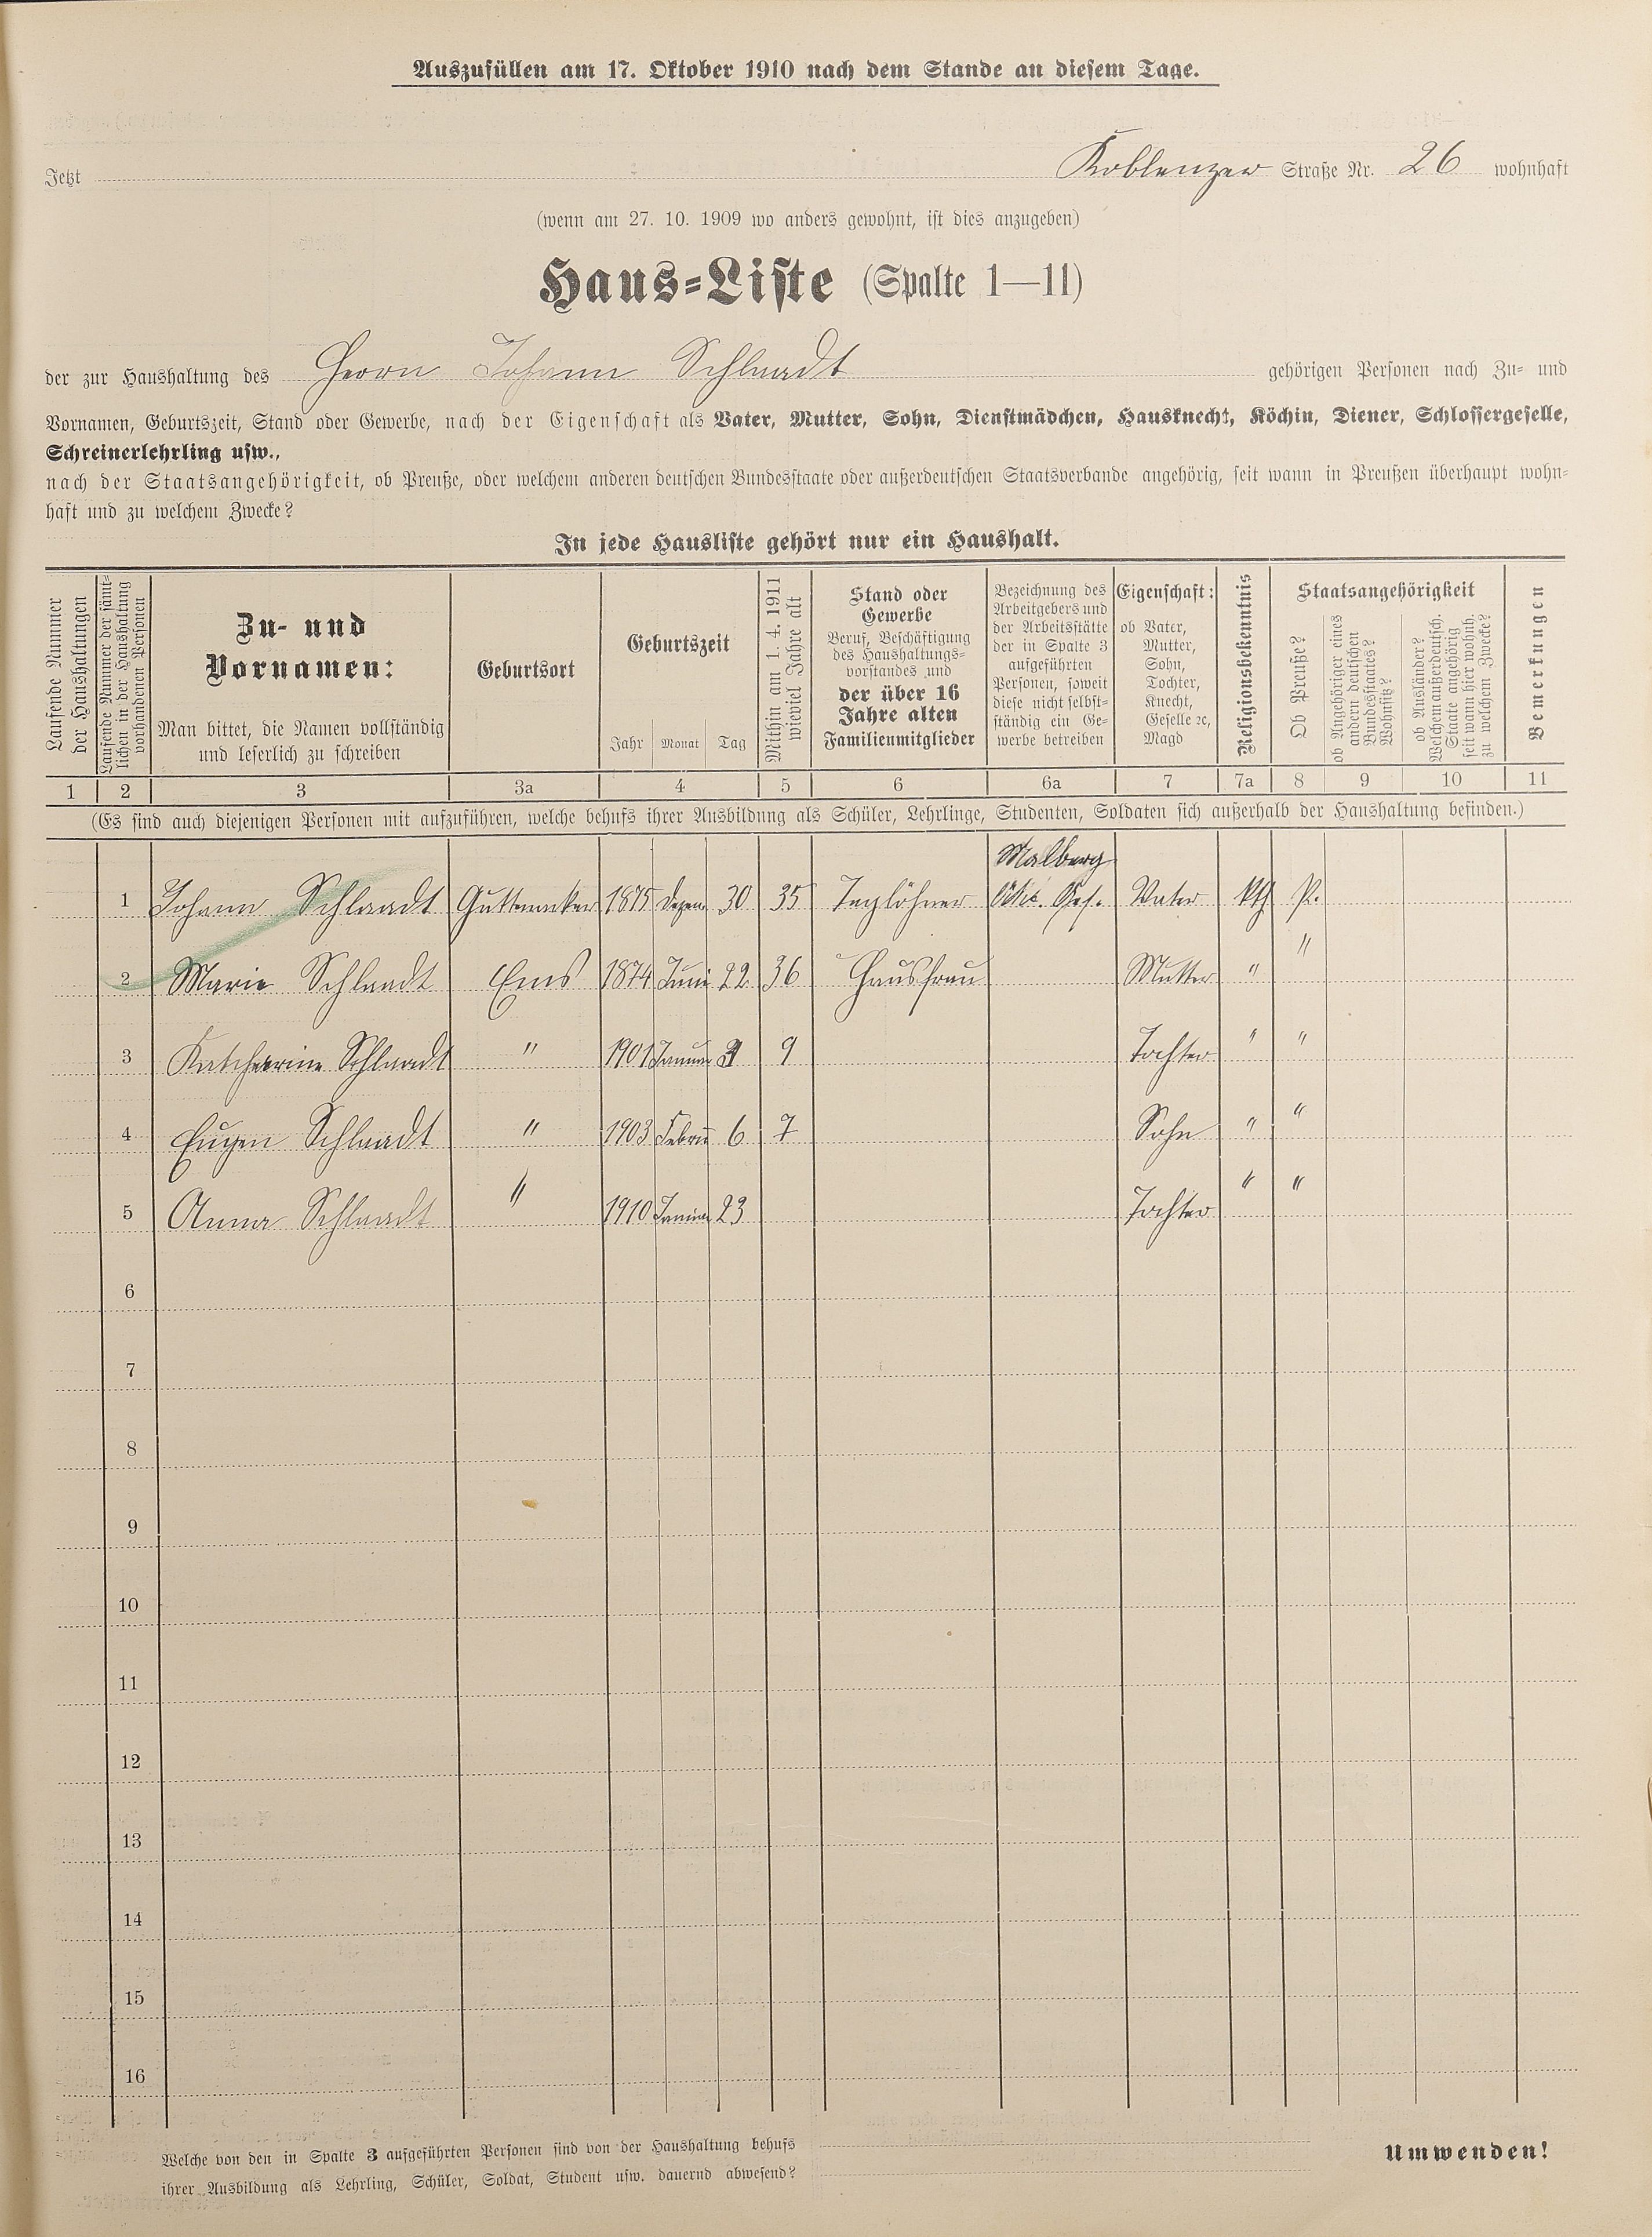 Auszufüllen am 17. Oktober 1910 nach dem Stande an diesem Tage.
Jetzt Koblenzer Straße Nr. 26 wohnhaft
(wenn am 27. 10. 1909 wo anders gewohnt, ist dies anzugeben)
Haus-Liste (Spalte 1—11)
der zur Haushaltung des Herrn Johann Schlaadt gehörigen Personen nach Zu- und
Vornamen, Geburtszeit, Stand oder Gewerbe, nach der Eigenschaft als Vater, Mutter, Sohn, Dienstmädchen, Hausknecht, Köchin, Diener, Schlossergeselle,
Schreinerlehrling usw.,
nach der Staatsangehörigkeit, ob Preuße, oder welchem anderen deutschen Bundesstaate oder außerdeutschen Staatsverbande angehörig, seit wann in Preußen überhaupt wohn-
haft und zu welchem Zwecke?
In jede Hausliste gehört nur ein Haushalt.
Laufende Nummer
der Haushaltungen
Laufende Nummer der sämt-
lichen in der Haushaltung
vorhandenen Personen
Zu- und
Vornamen:
Man bittet, die Namen vollständig
und leserlich zu schreiben
Geburtsort
Geburtszeit
Jahr Monat Tag
Mithin am 1. 4. 1911
wieviel Jahre alt
Stand oder
Gewerbe
Beruf, Beschäftigung
des Haushaltungs-
vorstandes und
der über 16
Jahre alten
Familienmitglieder
Bezeichnung des
Arbeitgebers und
der Arbeitsstätte
der in Spalte 3
aufgeführten
Personen, soweit
diese nicht selbst-
ständig ein Ge-
werbe betreiben
Eigenschaft:
ob Vater,
Mutter,
Sohn,
Tochter,
Knecht,
Geselle ꝛc,
Magd
Religionsbekenntnis
Staatsangehörigkeit
Ob Preuße?
ob Angehöriger eines
andern deutschen
Bundesstaates?
Wohnsitz?
ob Ausländer?
Welchem außerdeutsch.
Staate angehörig
seit wann hier wohnh.
zu welchem Zwecke?
Bemerkungen
1 2 3 3a 4 5 6 6a 7 7a 8 9 10 11
(Es sind auch diejenigen Personen mit aufzuführen, welche behufs ihrer Ausbildung als Schüler, Lehrlinge, Studenten, Soldaten sich außerhalb der Haushaltung befinden.)
Malberg
1 Johann Schlaadt 1875 Dezem 30 35 Taglöhner Ges. Vater kth P.
2 Marie Schlaadt Ems 1874 Juni 22 36 Hausfrau Mutter " "
3 Katcharine Schlaadt " 1901 Januar 9 Tochter " "
4 Eugen Schlaadt " 1903 Febru 6 7 Sohn " "
5 Anna Schlaadt " 1910 Januar 23 Tochter " "
6
7
8
9
10
11
12
13
14
15
16
Welche von den in Spalte 3 aufgeführten Personen sind von der Haushaltung behufs
ihrer Ausbildung als Lehrling, Schüler, Soldat, Student usw. dauernd abwesend?
Umwenden!